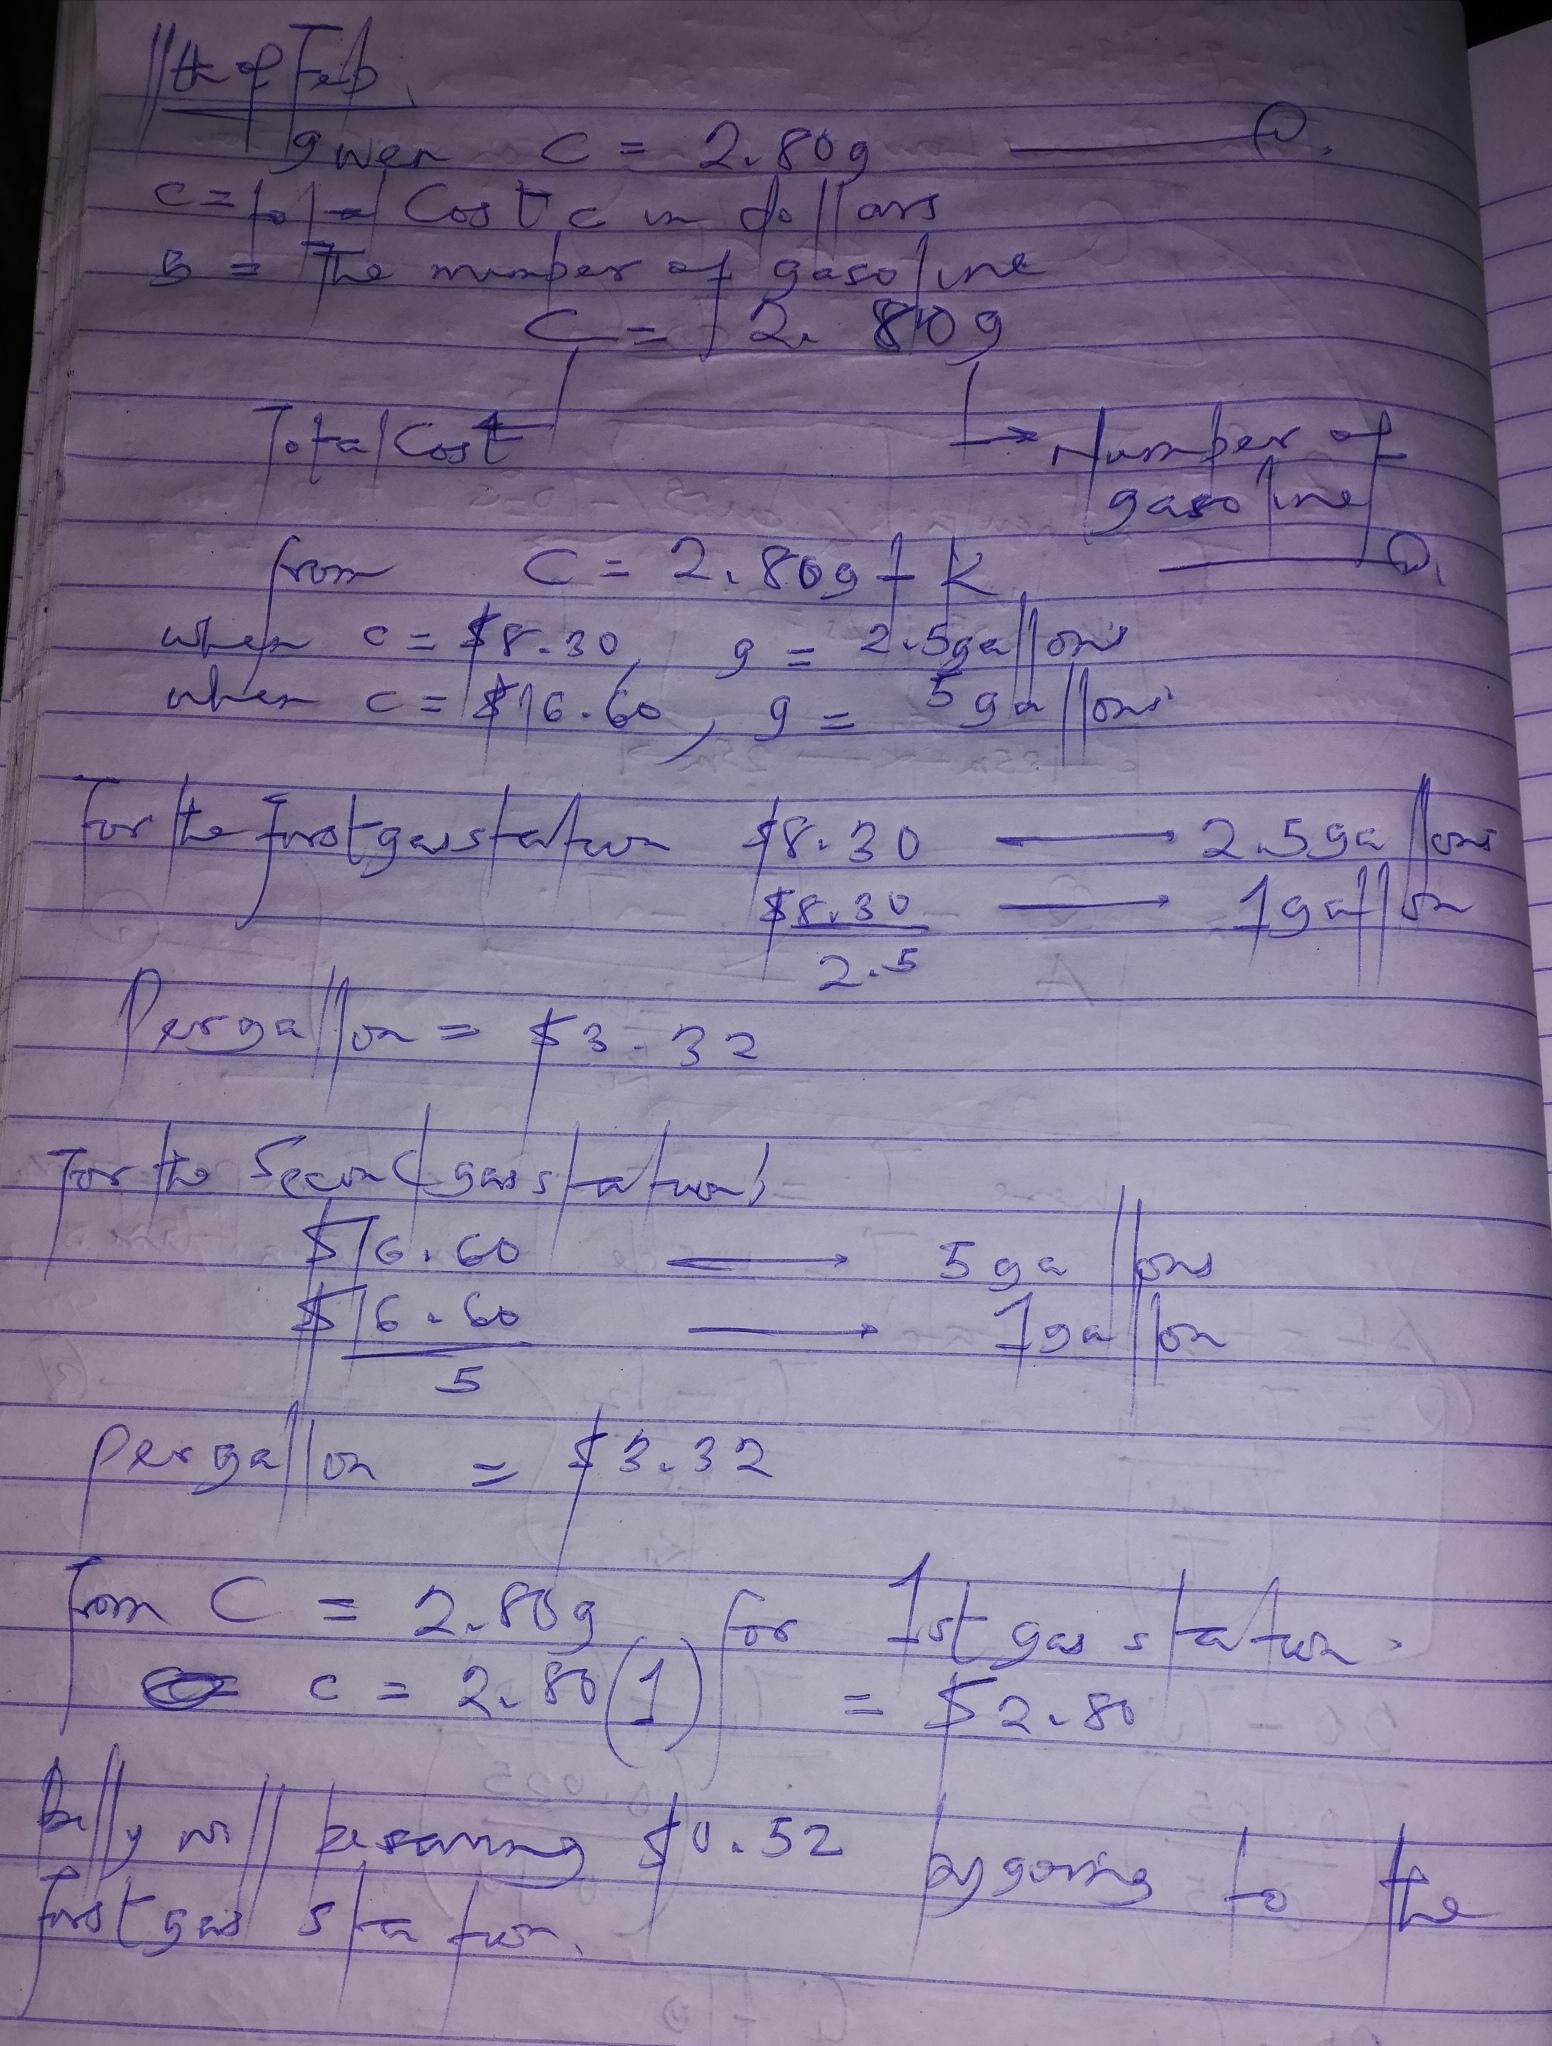 11th of Feb.
given C = 2.80g ——— ①.
C = total Cost c in dollars
g = The number of gasoline
C = 2.80g
Total Cost
Number of
gasoline
from C = 2.80g + K ——— ①.
when c = $8.30, g = 2.5gallons
when c = $16.60, g = 5gallons
For the first gas station $8.30 → 2.5gallons
$8.30/2.5 → 1gallon
Per gallon = $3.32
For the Second gas station,
$16.60 → 5gallons
$16.60/5 → 1gallon
per gallon = $3.32
from C = 2.80g for 1st gas station.
c = 2.80(1) = $2.80
billy will be saving $0.52 by going to the
first gas station.